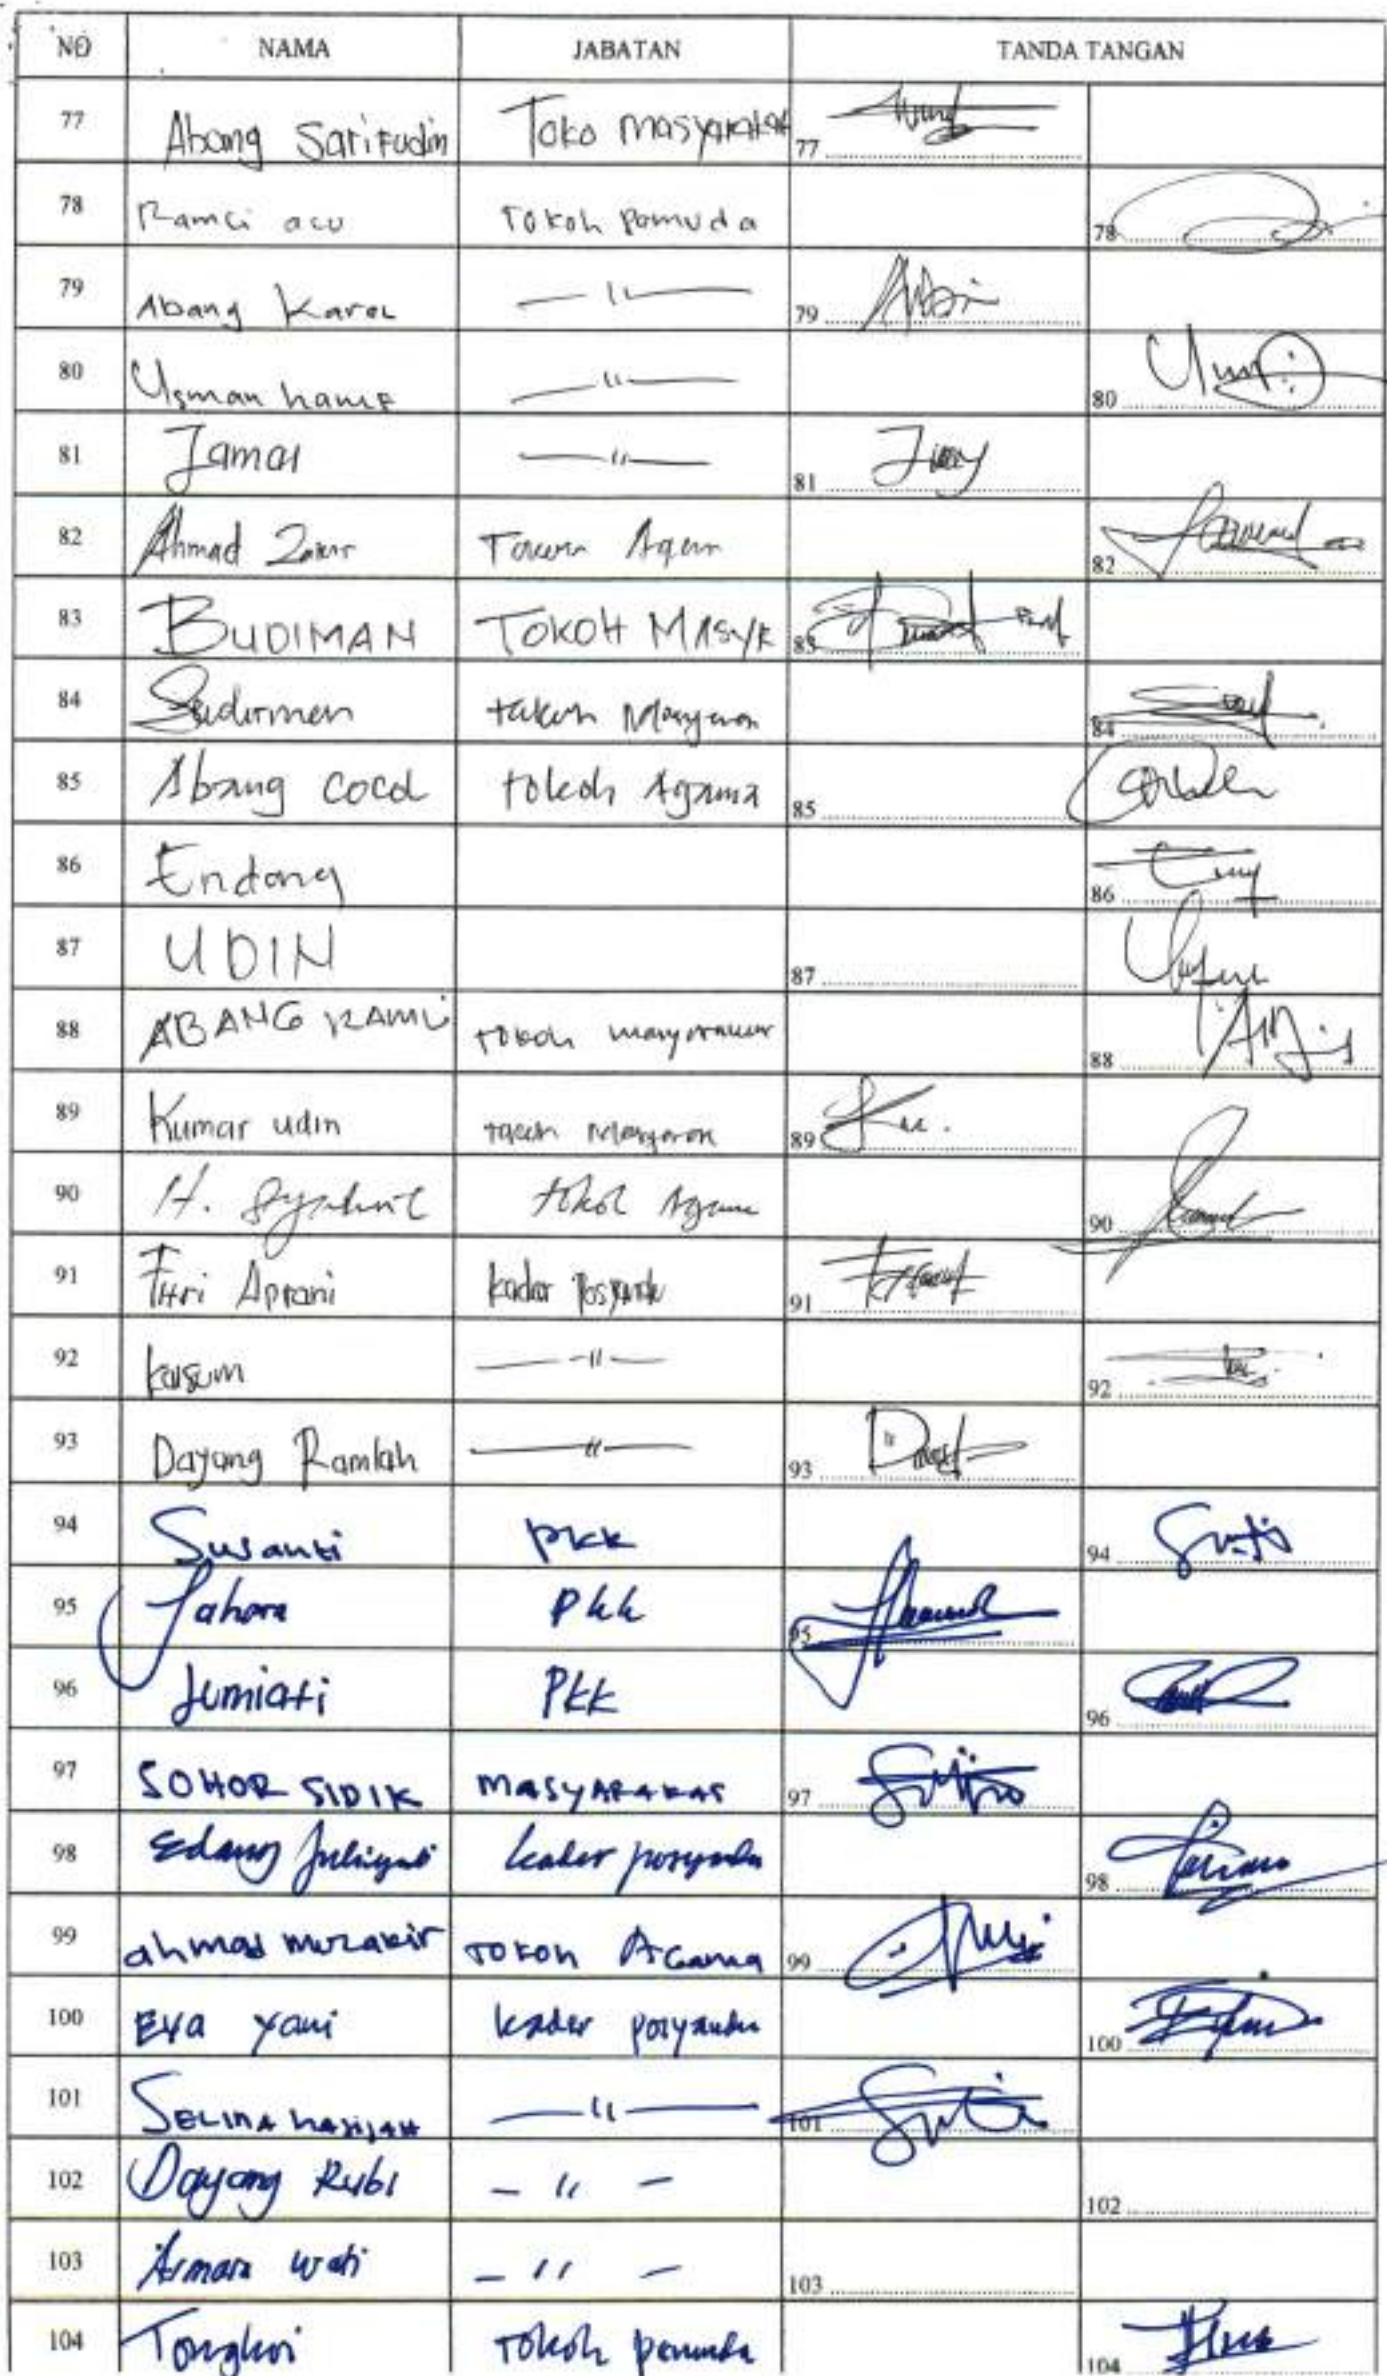 NO NAMA JABATAN TANDA TANGAN
77 Abang Sarifudin Toko masyarakat 77
78 Ramli acu Tokoh Pomuda 78
79 Abang Karol — 11 — 79
80 Usman hamf — 11 — 80
81 Jamal — 11 — 81
82 Ahmad 82
83 BUDIMAN TOKOH MASYR 83
84 Sudirman 84
85 Abang cocol tokoh Agama 85
86 Endang 86
87 UDIN 87
88 ABANG RAMLI tokoh 88
89 Kumar udin 89
90 H. tokoh Agama 90
91 Fitri Apriani kader Posyandu 91
92 kalsum — 11 — 92
93 Dayang Ramlah — 11 — 93
94 Susanti PKK 94
95 Jahara PKK 95
96 Jumiati PKK 96
97 SOHOR SIDIK MASYARAKAT 97
98 Edang Juliyati kader posyandu 98
99 ahmad muzakir TOKOH AGama 99
100 Eva yani kader posyandu 100
101 SELINA — 11 — 101
102 Dayang Rubi – 11 – 102
103 Asmara wati – 11 – 103
104 Tokoh pemuda 104